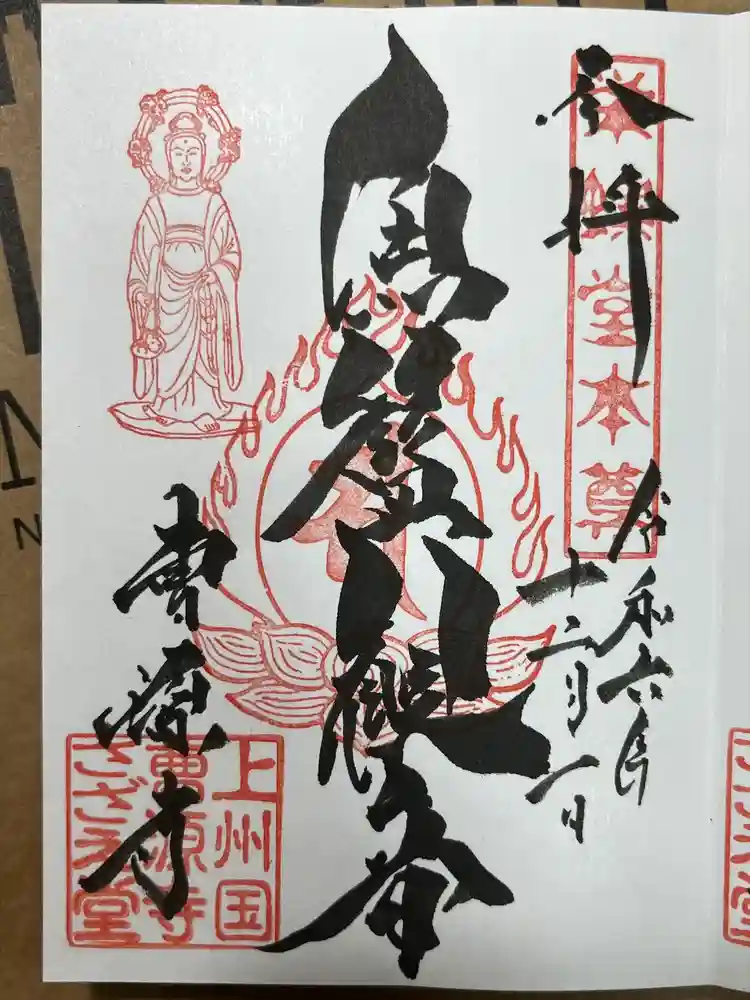 参拝
栄螺堂本尊
令和六年
十二月一日
魚籃観世音
曹源寺
上州国
曹源寺
さざえ堂